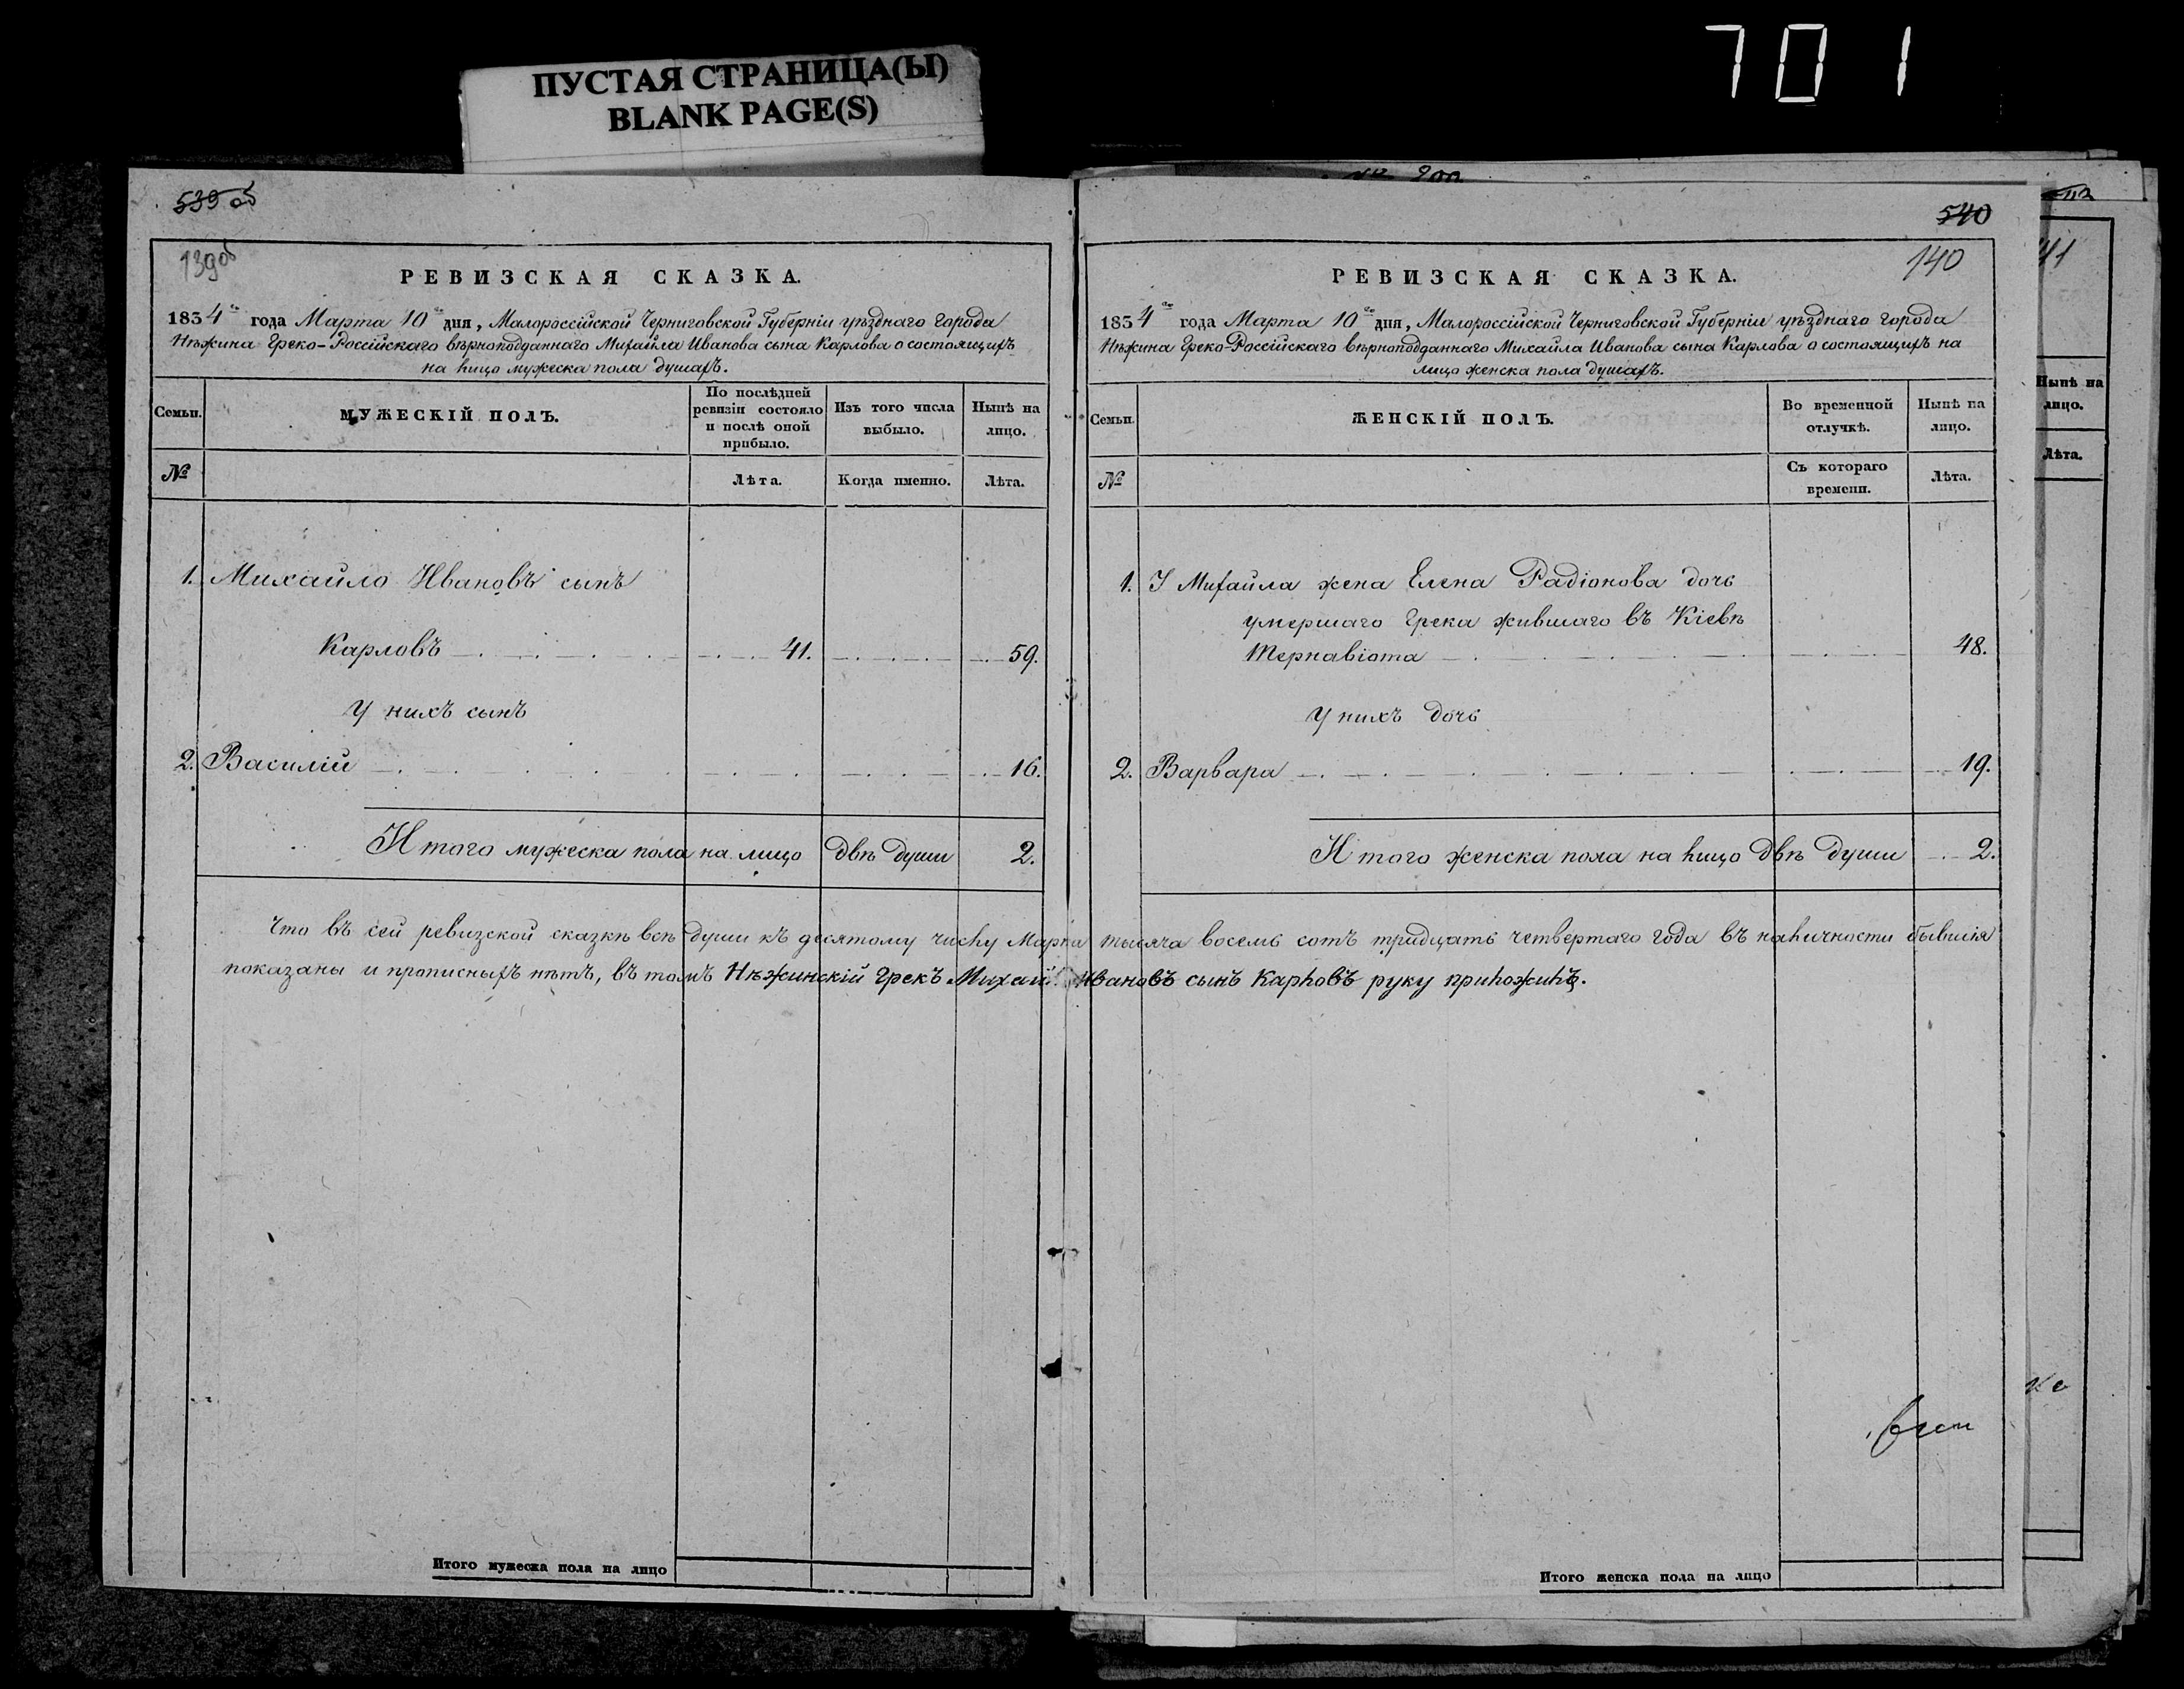 701
ПУСТАЯ СТРАНИЦА(Ы)
BLANK PAGE(S)
539 об
139 об
РЕВИЗСКАЯ СКАЗКА.
1834 го года Марта 10 го дня, Малороссійской Черниговской Губерніи уѣзднаго города
Нѣжина Греко-Россійскаго вѣрноподданнаго Михайла Иванова сына Карлова о состоящихъ
на лицо мужеска пола душахъ.
Семьи. МУЖЕСКІЙ ПОЛЪ. По послѣдней ревизіи состояло и послѣ оной прибыло. Изъ того числа выбыло. Нынѣ на лицо.
№ Лѣта. Когда именно. Лѣта.
1. Михайло Ивановъ сынъ
Карловъ 41. 59.
У нихъ сынъ
2. Василій 16.
Итого мужеска пола на лицо двѣ души 2.
Что въ сей ревизской сказкѣ всѣ души къ десятому числу Марта тысяча восемь сотъ тридцать четвертаго года въ наличности бывшія
показаны и прописныхъ нѣтъ, въ томъ Нѣжинскій Грекъ Михайл Ивановъ сынъ Карловъ руку приложилъ.
Итого мужеска пола на лицо
540
140
РЕВИЗСКАЯ СКАЗКА.
1834 го года Марта 10 го дня, Малороссійской Черниговской Губерніи уѣзднаго города
Нѣжина Греко-Россійскаго вѣрноподданнаго Михайла Иванова сына Карлова о состоящихъ на
лицо женска пола душахъ.
Семьи. ЖЕНСКІЙ ПОЛЪ. Во временной отлучкѣ. Нынѣ на лицо.
№ Съ котораго времени. Лѣта.
1. У Михайла жена Елена Радіонова дочь
умершаго Грека жившаго въ Кіевѣ
Тернавіота 48.
У нихъ дочь
2. Варвара 19.
Итого женска пола на лицо двѣ души 2.
Итого женска пола на лицо
41
Нынѣ на
лицо.
Лѣта.